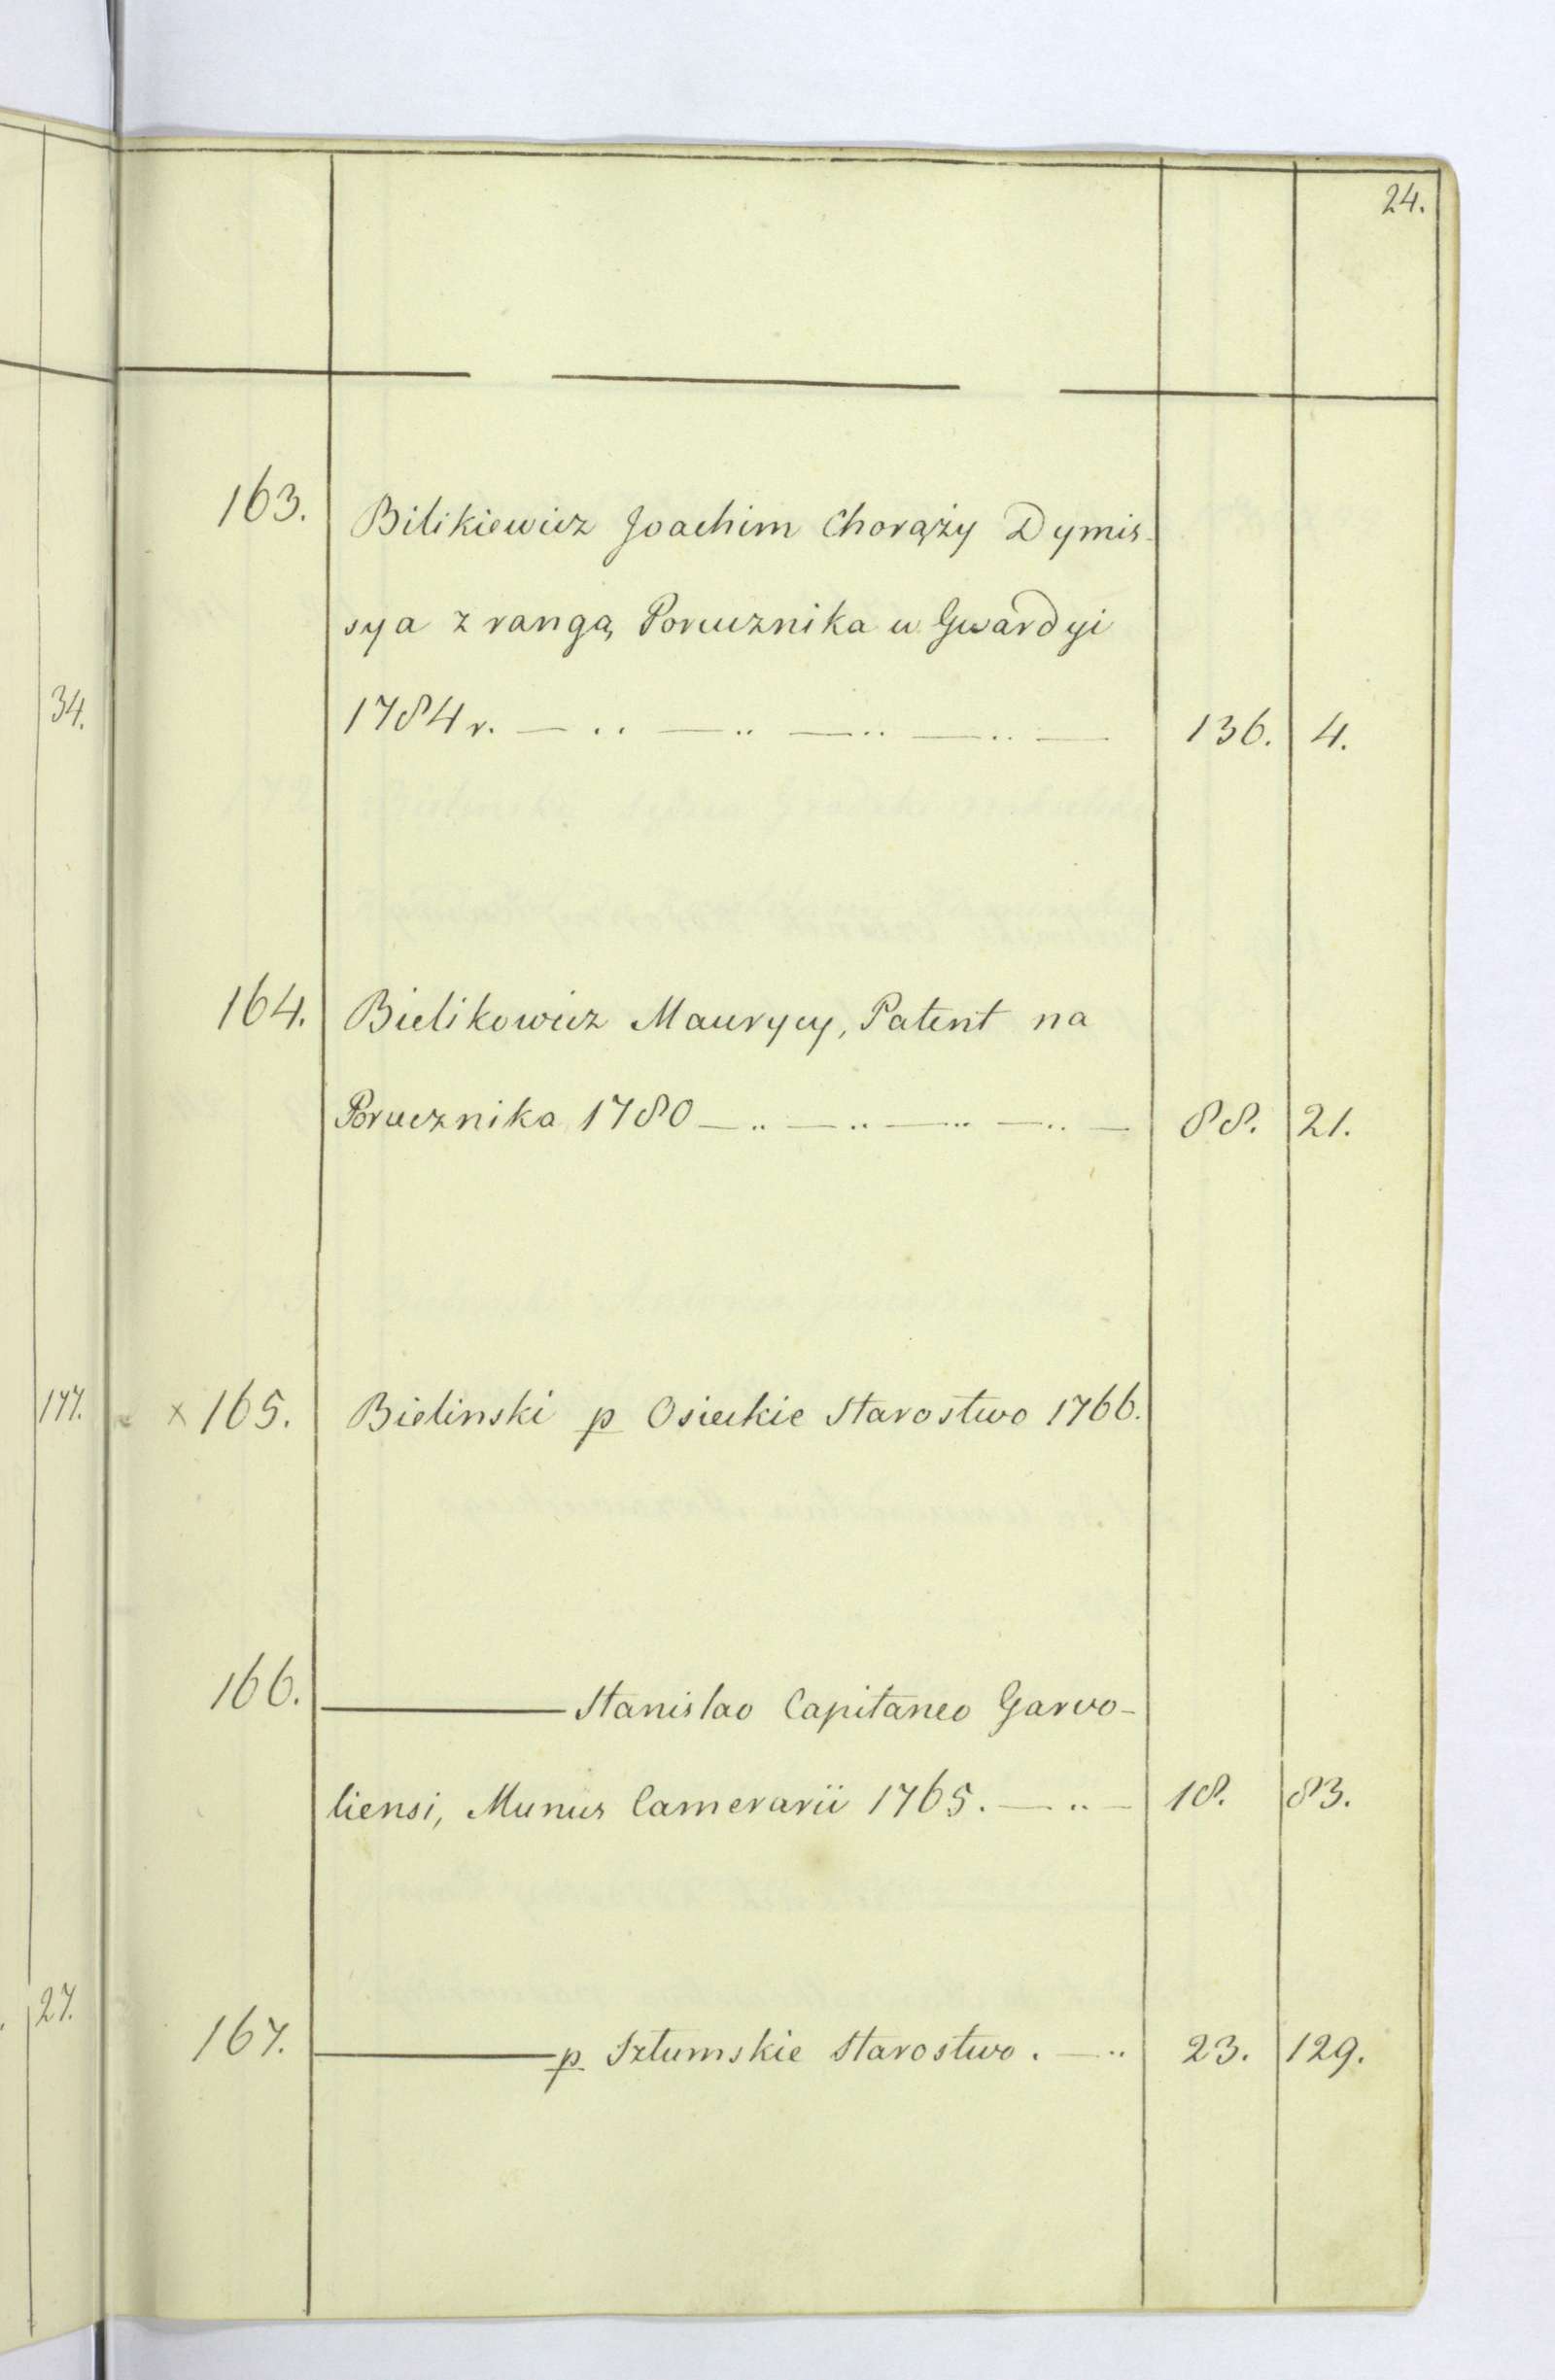 24.
163. Bilikiewicz Joachim Chorąży Dymis-
sya z rangą Porucznika w Gwardyi
1784 r. — .. — .. — .. — .. — 136. 4.
34.
164. Bielikowicz Maurycy, Patent na
Porucznika 1780 — .. — .. — .. — .. — 88. 21.
177.
x 165. Bielinski p Osieckie Starostwo 1766.
166. ——— Stanislao Capitaneo Garvo-
liensi, Munus Camerarii 1765. — .. — 18. 83.
27.
167. ——— p Sztumskie Starostwo. — .. 23. 129.